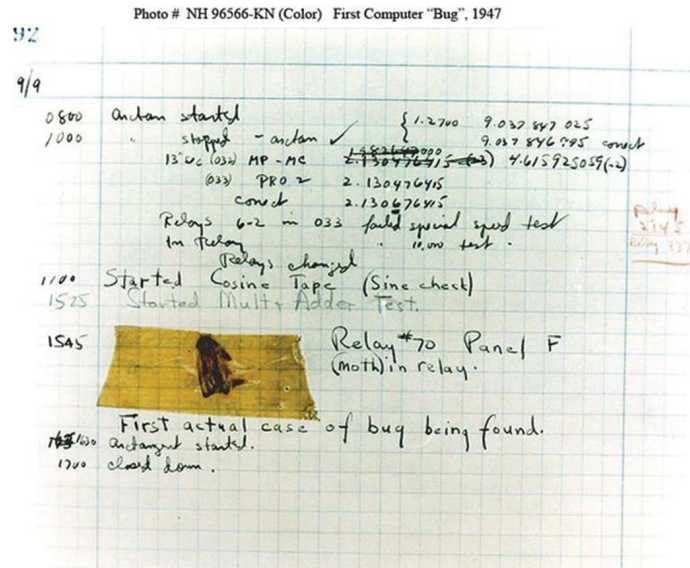 Photo # NH 96566-KN (Color) First Computer “Bug”, 1947
92
9/9
0800 Arctan started { 1.2700 9.037 847 025
1000 " stopped - arctan ✓ 9.037 846 995 correct
13" uc (032) MP - MC 2.130476415 (-3) 4.615925059(-2)
(033) PRO 2 2.130476415
correct 2.130676415
Relays 6-2 in 033 failed special speed test
In Relay " 10,000 test .
Relay
Relays changed
1100 Started Cosine Tape (Sine check)
1525 Started Mult + Adder Test.
1545 Relay #70 Panel F
(moth) in relay.
First actual case of bug being found.
1630 arctangent started.
1700 closed down .